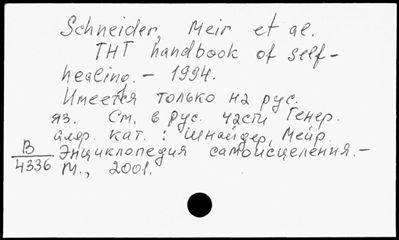 Schneider, Meir et al.
THT handbook of self-
healing. – 1994.
Имеется только на рус.
яз. См. в рус. части Генер.
алф. кат. : Шнайдер, Мейр.
B
4336
Энциклопедия самоисцеления. –
М., 2001.